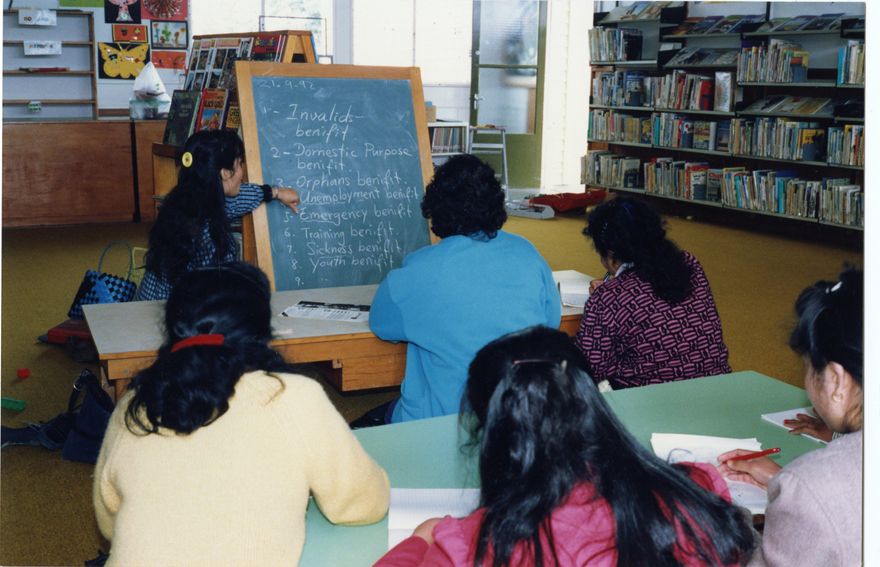 21-9-92
1 - Invalids-
benifit
2 - Domestic Purpose
benifit -
3 - Orphans benifit.
4. Unemployment benifit
5. Emergency benifit
6. Training benifit.
7. Sickness benifit.
8. Youth benifit.
9. "